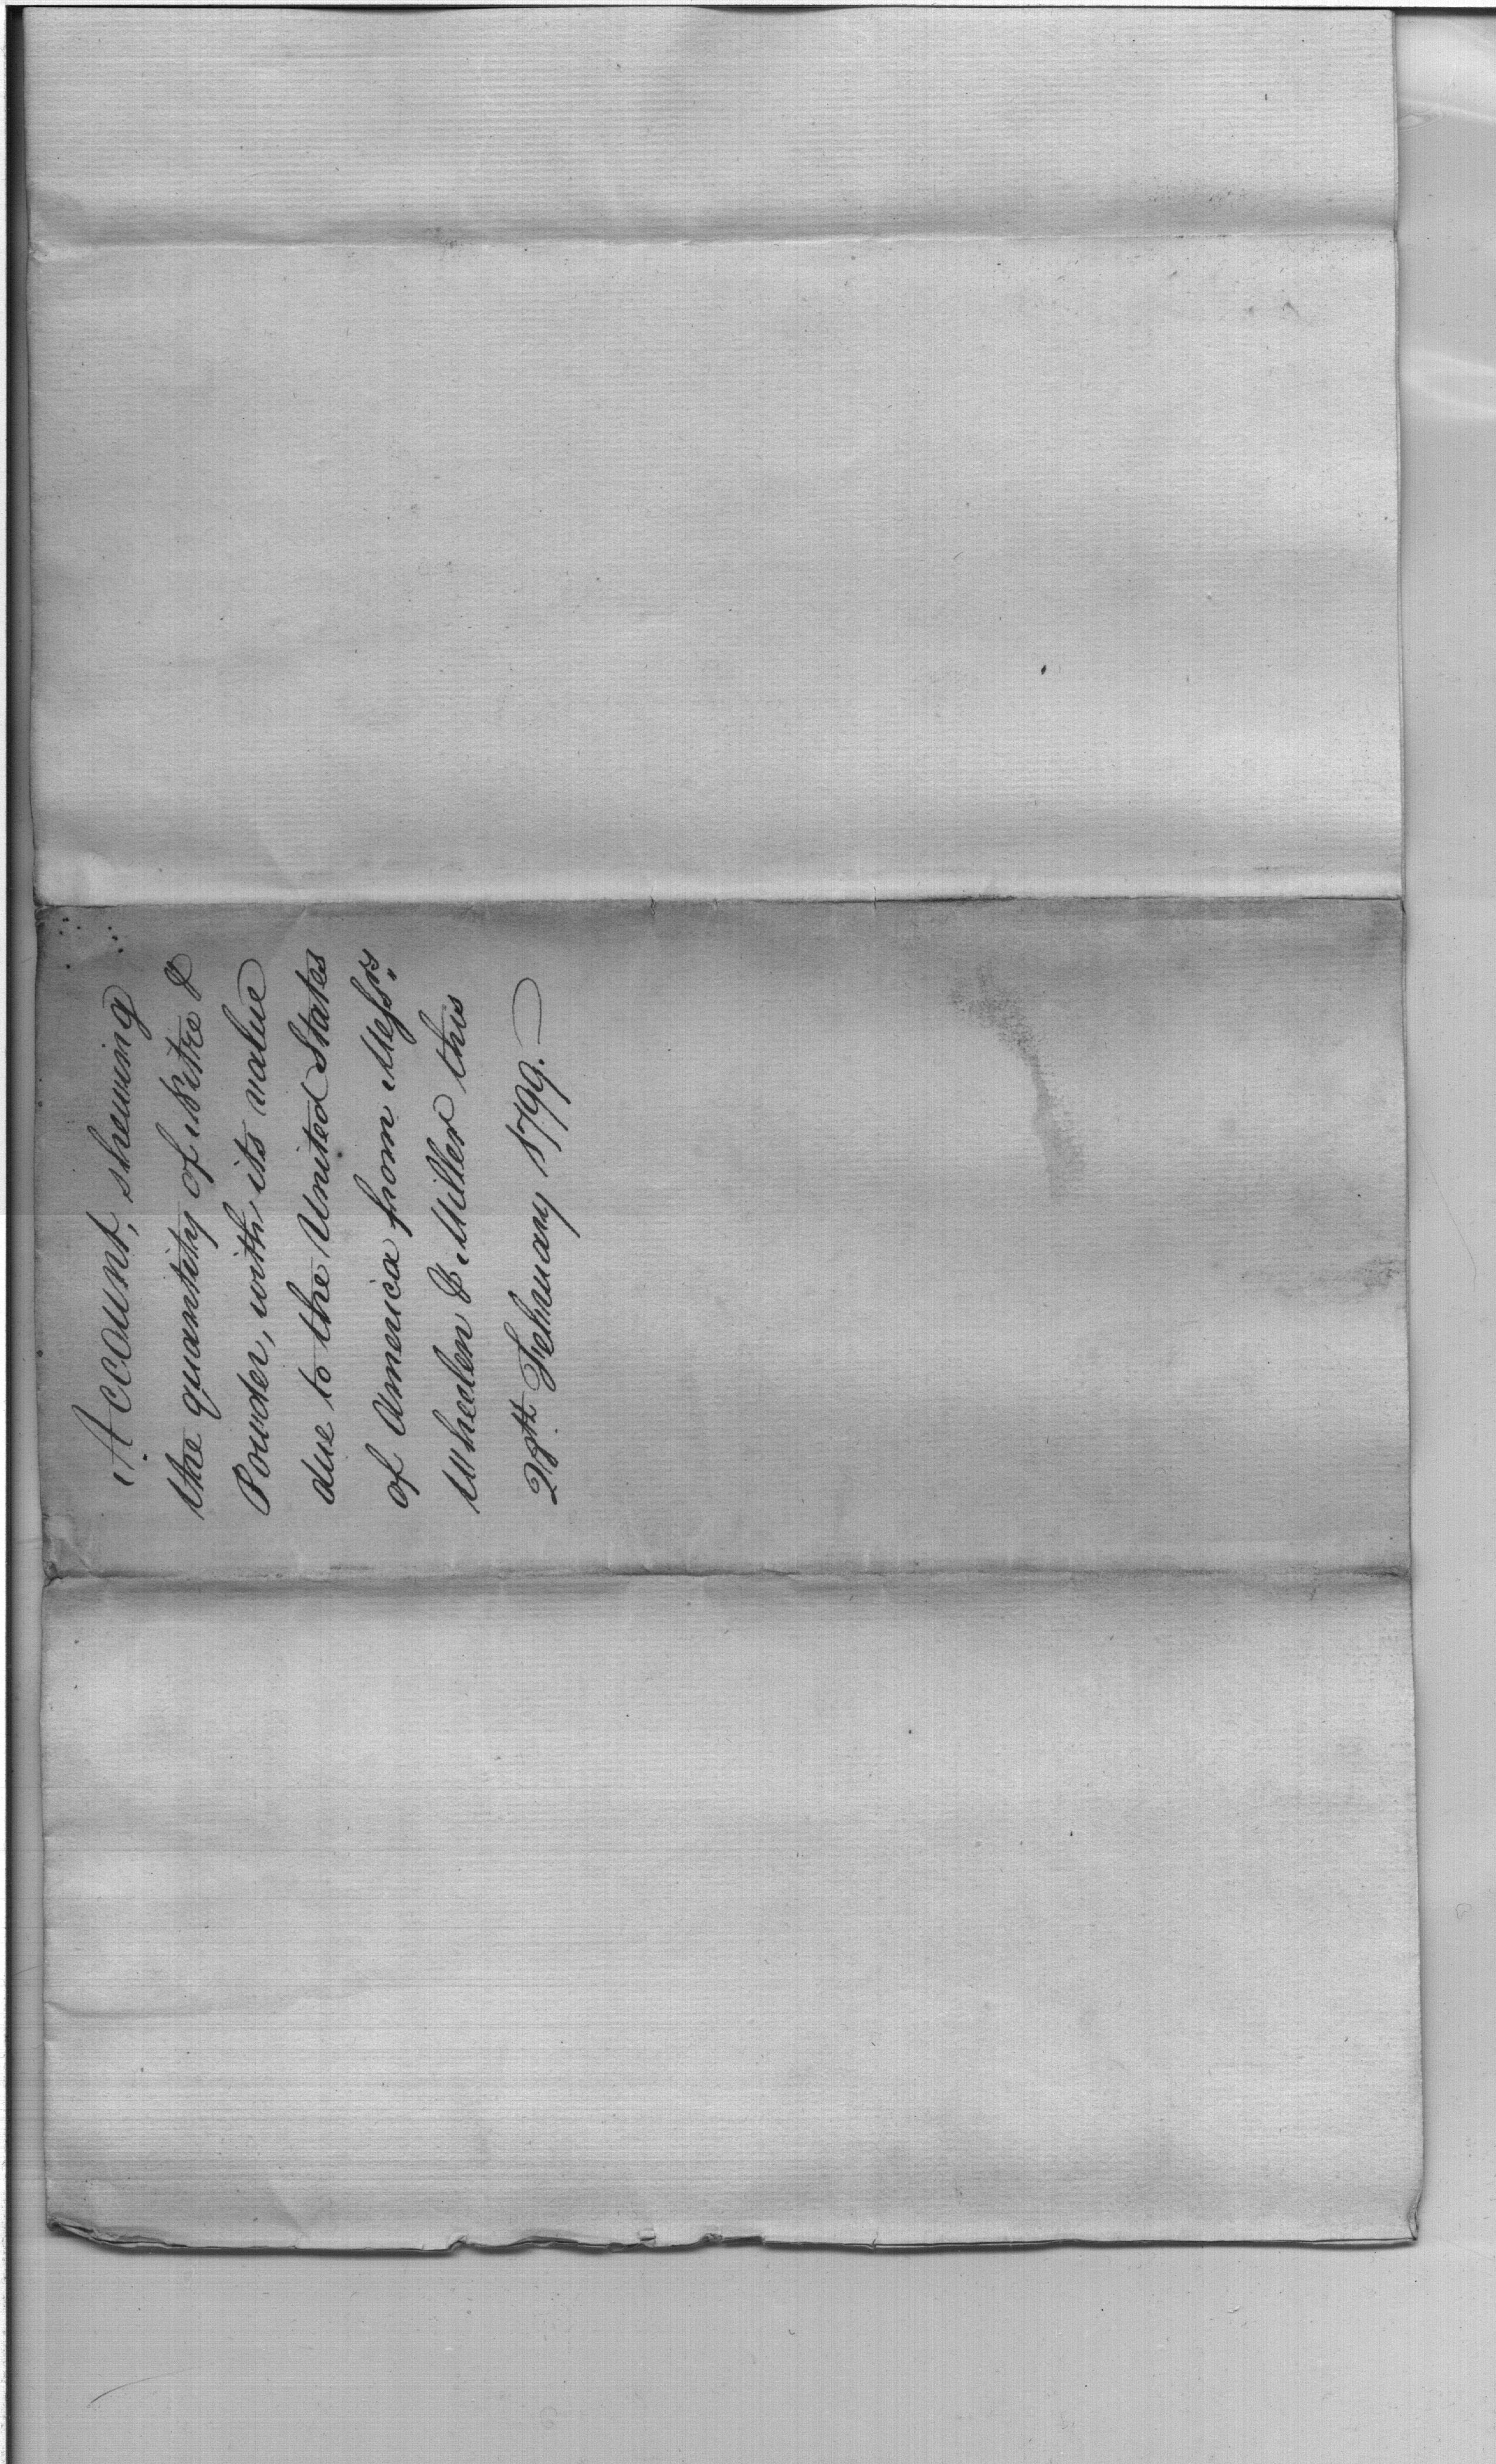 Account, shewing
the quantity of Nitre &
Powder, with its value
due to the United States
of America from Messrs.
Whelen & Miller this
28th. February 1799.